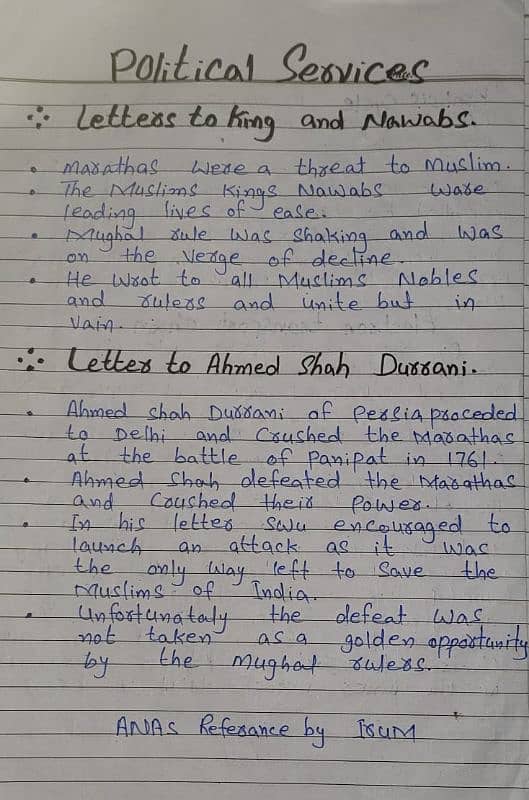 Political Services
Letters to King and Nawabs.
• Marathas were a threat to Muslim.
• The Muslims Kings Nawabs ware
leading lives of ease.
• Mughal rule was shaking and was
on the verge of decline.
• He wrot to all Muslims Nobles
and rulers and unite but in
vain.
Letter to Ahmed Shah Durrani.
• Ahmed Shah Durrani of Persia proceded
to Delhi and Crushed the Marathas
at the battle of Panipat in 1761.
• Ahmed Shah defeated the Marathas
and Coushed their Power.
• In his letter SWU encouraged to
launch an attack as it was
the only way left to save the
Muslims of India.
• Unfortunataly the defeat was
not taken as a golden opportunity
by the Mughal rulers.
ANAS Referance by